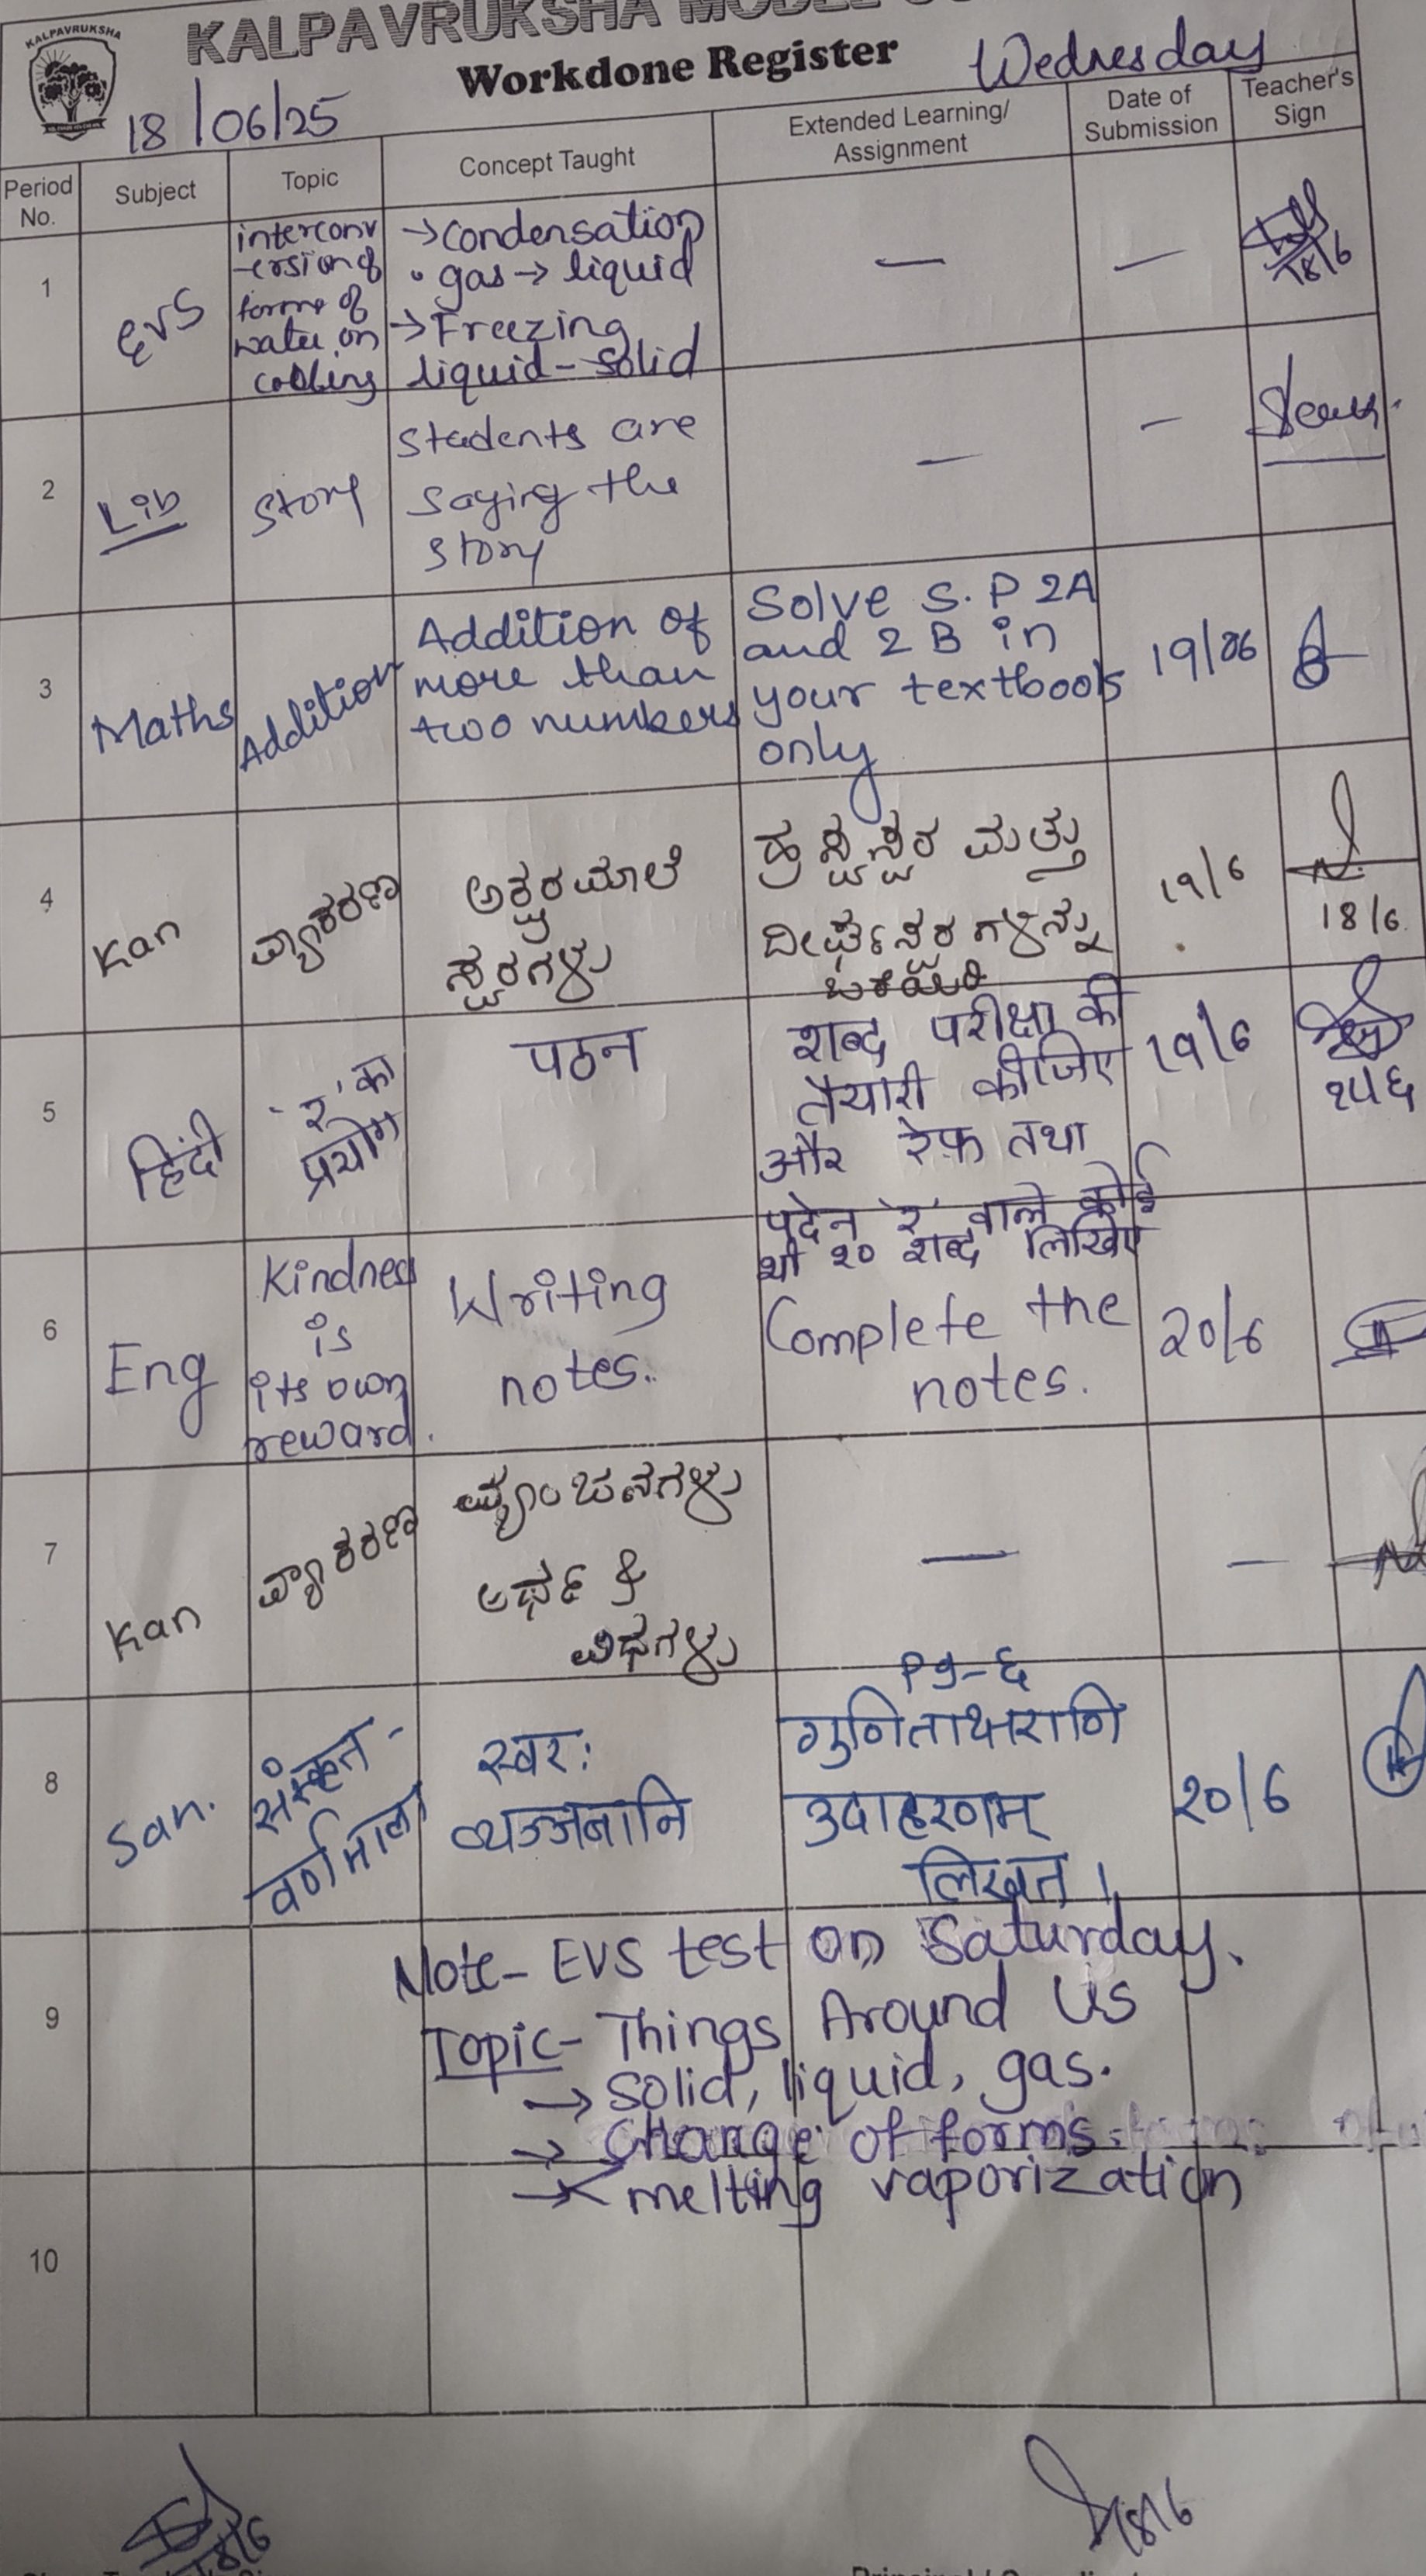 KALPAVRUKSHA
KALPAVRUKSHA MODEL
Workdone Register
Wednesday
18/06/25
Period No.
Subject
Topic
Concept Taught
Extended Learning/
Assignment
Date of
Submission
Teacher's
Sign
1
EVS
interconv
-ersion of
forms of
water on
cooling
→Condensation
• gas → liquid
→Freezing
liquid - solid
—
—
18/6
2
Lib
Story
Students are
saying the
story
—
—
3
Maths
Addition
Addition of
more than
two numbers
Solve S.P 2A
and 2B in
your textbook
only
19/06
4
Kan
ವ್ಯಾಕರಣ
ಅಕ್ಷರಮಾಲೆ
ಸ್ವರಗಳು
ಹ್ರಸ್ವಸ್ವರ ಮತ್ತು
ದೀರ್ಘಸ್ವರಗಳನ್ನು
ಬರೆಯಿರಿ
19/6
18/6
5
हिंदी
'र' का
प्रयोग
पठन
शब्द परीक्षा की
तैयारी कीजिए
और रेफ़ तथा
पदेन 'र' वाले कोई
भी १० शब्द लिखिए
19/6
6
Eng
Kindness
is
its own
reward.
Writing
notes.
Complete the
notes.
20/6
7
Kan
ವ್ಯಾಕರಣ
ವ್ಯಂಜನಗಳು
ಅರ್ಥ &
ವಿಧಗಳು
—
—
8
San.
संस्कृत-
वर्णमाला
स्वर:
व्यञ्जनानि
Pg-६
गुणिताक्षराणि
उदाहरणम्
लिखत।
20/6
9
Note- EVS test on Saturday.
Topic- Things Around Us
→ Solid, liquid, gas.
→ Change of forms.
→ melting vaporization
10
18/6
18/6